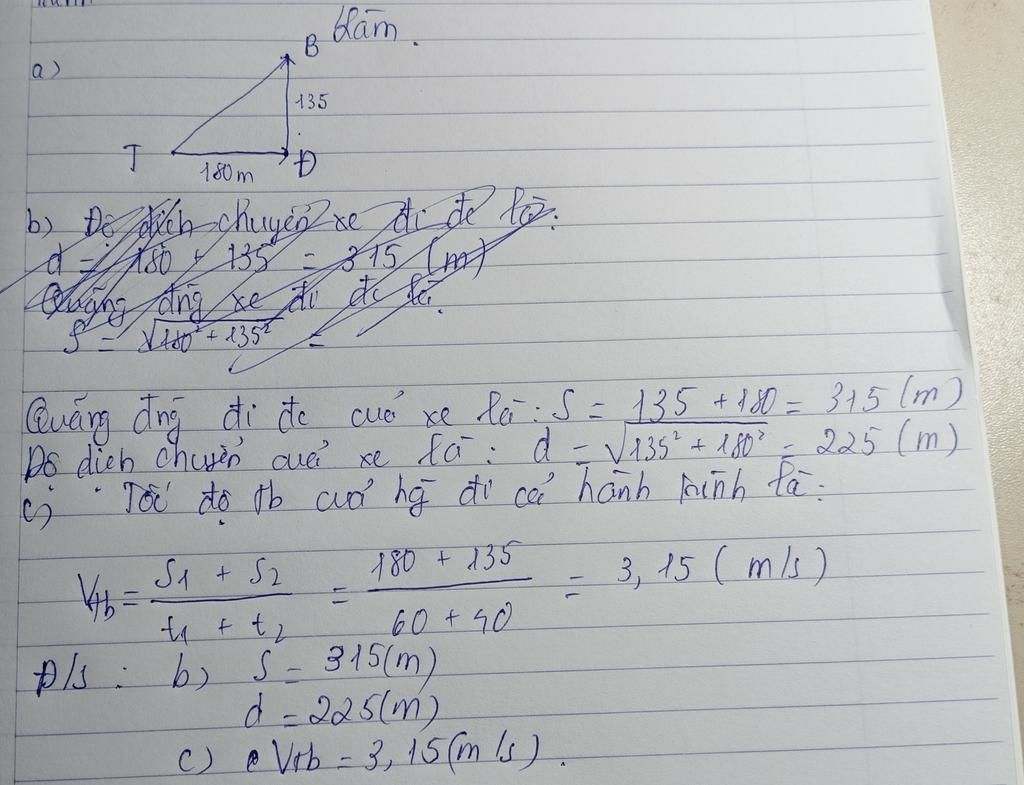 Làm.
a)
B
135
T
180m
Đ
b) Độ dịch chuyển xe đi đc là:
d = 180 + 135 = 315 (m)
Quãng đng xe đi đc là.
S = √180² + 135² =
Quãng đng đi đc cuả xe là: S = 135 + 180 = 315 (m)
Độ dịch chuyển cuả xe là: d = √135² + 180² = 225 (m)
c) Tốc độ tb cuả ng đi cả hành trình là:
Vtb = S1 + S2 / t1 + t2 = 180 + 135 / 60 + 40 = 3,15 (m/s)
Đ/s: b) S = 315(m)
d = 225(m)
c) Vtb = 3,15(m/s).